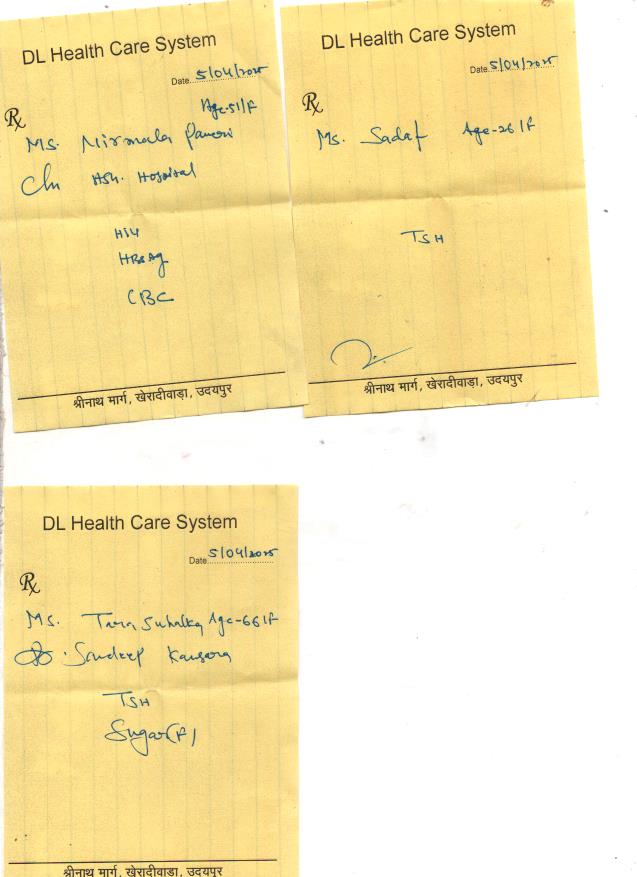 DL Health Care System
Date 5/04/2025
Age-51/F
Rx
Ms. Nirmala
HSG. Hospital
HBsAg
CBC
श्रीनाथ मार्ग, खेरादीवाड़ा, उदयपुर
DL Health Care System
Date 5/04/2025
Rx
Ms. Sadaf Age-26/F
TSH
श्रीनाथ मार्ग, खेरादीवाड़ा, उदयपुर
DL Health Care System
Date 5/04/2025
Rx
Ms. Tara Suhalka Age-66/F
Sandeep Kansara
TSH
Sugar(F)
श्रीनाथ मार्ग, खेरादीवाडा, उदयपुर